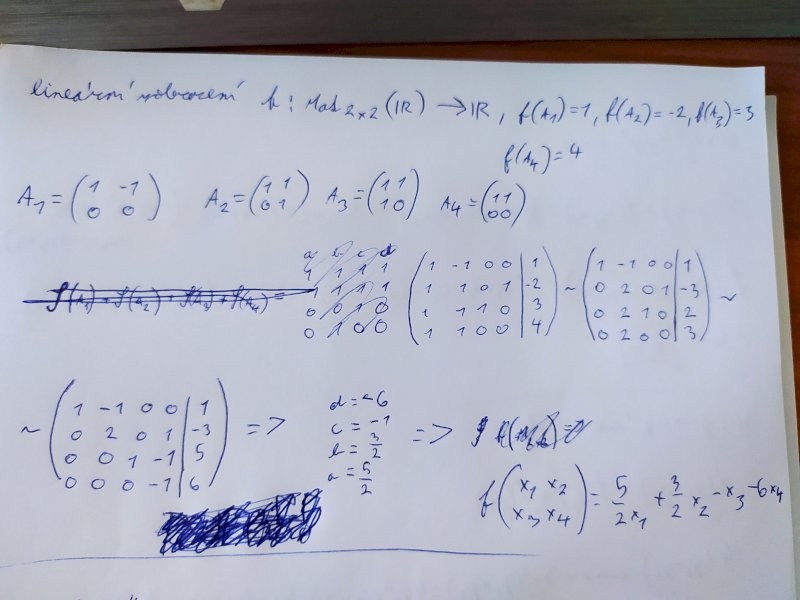 lineární zobrazení f : Mat₂ₓ₂ (IR) → IR, f(A₁)=1, f(A₂)=-2, f(A₃)=3
f(A₄)=4
A₁=(1 -1
0 0) A₂=(1 1
0 1) A₃=(1 1
1 0) A₄=(1 1
0 0)
f(A₁)+f(A₂)+f(A₃)+f(A₄)=
(1 -1 0 0 | 1
1 1 0 1 | -2
1 1 1 0 | 3
1 1 0 0 | 4) ~ (1 -1 0 0 | 1
0 2 0 1 | -3
0 2 1 0 | 2
0 2 0 0 | 3) ~
~ (1 -1 0 0 | 1
0 2 0 1 | -3
0 0 1 -1 | 5
0 0 0 -1 | 6) => d=-6
c=-1
b=3/2
a=5/2 =>
f(x₁ x₂
x₃ x₄)=5/2 x₁ + 3/2 x₂ - x₃ - 6x₄